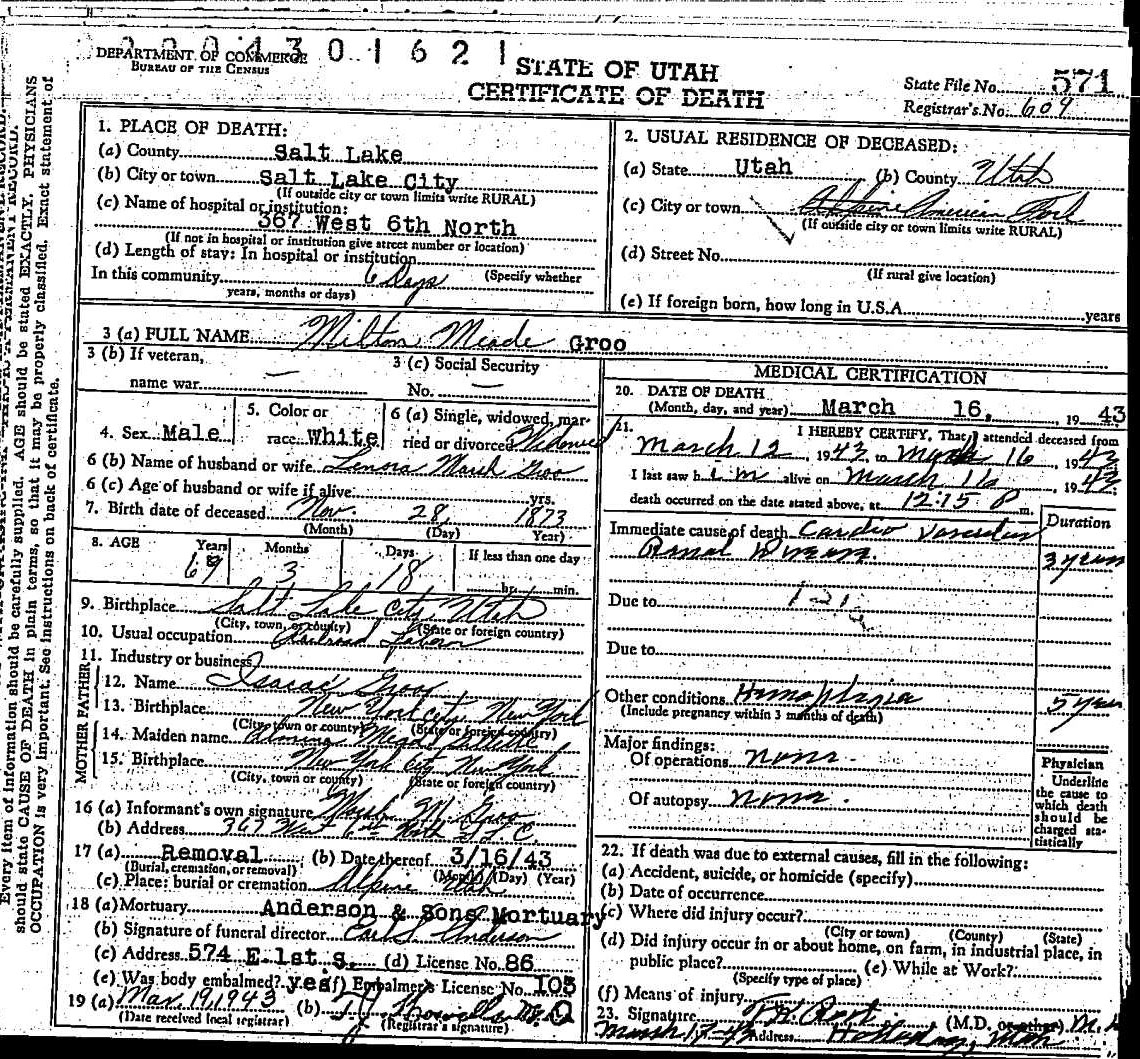 2 2 0 4 3 0 1 6 2 1
DEPARTMENT OF COMMERCE
BUREAU OF THE CENSUS
STATE OF UTAH
CERTIFICATE OF DEATH
State File No. 571
Registrar's No. 609
Every item of information should be carefully supplied. AGE should be stated EXACTLY. PHYSICIANS
should state CAUSE OF DEATH in plain terms, so that it may be properly classified. Exact statement of
OCCUPATION is very important. See instructions on back of certificate.
1. PLACE OF DEATH:
(a) County Salt Lake
(b) City or town Salt Lake City
(If outside city or town limits write RURAL)
(c) Name of hospital or institution:
367 West 6th North
(If not in hospital or institution give street number or location)
(d) Length of stay: In hospital or institution
In this community 6 Days (Specify whether
years, months or days)
2. USUAL RESIDENCE OF DECEASED:
(a) State Utah (b) County Utah
(c) City or town Alpine American Fork
(If outside city or town limits write RURAL)
(d) Street No.
(If rural give location)
(e) If foreign born, how long in U.S.A. years
3 (a) FULL NAME Milton Meade Groo
3 (b) If veteran,
name war —
3 (c) Social Security
No. —
4. Sex Male
5. Color or
race White
6 (a) Single, widowed, mar-
ried or divorced Widowed
6 (b) Name of husband or wife Lenora Marsh Groo
6 (c) Age of husband or wife if alive yrs.
7. Birth date of deceased Nov. 28, 1873
(Month) (Day) Year)
8. AGE Years Months Days If less than one day
69 3 18 hr. min.
9. Birthplace Salt Lake City, Utah
(City, town, or county) (State or foreign country)
10. Usual occupation Railroad
11. Industry or business
MOTHER FATHER
12. Name Isaac Groo
13. Birthplace New York City, New York
(City, town or county) (State or foreign country)
14. Maiden name
15. Birthplace New York City New York
(City, town or county) (State or foreign country)
16 (a) Informant's own signature M. Groo
(b) Address 367 West 6th North S.L.C.
17 (a) Removal (b) Date thereof 3/16/43
(Burial, cremation, or removal) (Month) (Day) (Year)
(c) Place: burial or cremation Alpine Utah
18 (a) Mortuary Anderson & Sons Mortuary
(b) Signature of funeral director Earl S. Anderson
(c) Address 574 E 1st S. (d) License No. 86
(e) Was body embalmed? yes (f) Embalmer's License No. 103
19 (a) Mar 19, 1943 (b)
(Date received local registrar) (Registrar's signature)
MEDICAL CERTIFICATION
20. DATE OF DEATH
(Month, day, and year) March 16, 19 43
21. I HEREBY CERTIFY, That I attended deceased from
March 12, 1943 to March 16, 1943
I last saw him alive on March 16 1943
death occurred on the date stated above, at 12:15 P m.
Duration
Immediate cause of death Cardio Vascular
Renal Disease. 3 years
Due to
Due to
Other conditions Hemiplegia 5 years
(Include pregnancy within 3 months of death)
Major findings:
Of operations none.
Of autopsy none.
Physician
Underline
the cause to
which death
should be
charged sta-
tistically
22. If death was due to external causes, fill in the following:
(a) Accident, suicide, or homicide (specify)
(b) Date of occurrence
(c) Where did injury occur?
(City or town) (County) (State)
(d) Did injury occur in or about home, on farm, in industrial place, in
public place? (e) While at Work?
(Specify type of place)
(f) Means of injury
23. Signature (M.D. or other) M.D.
March 17-43 Address Holladay, Utah